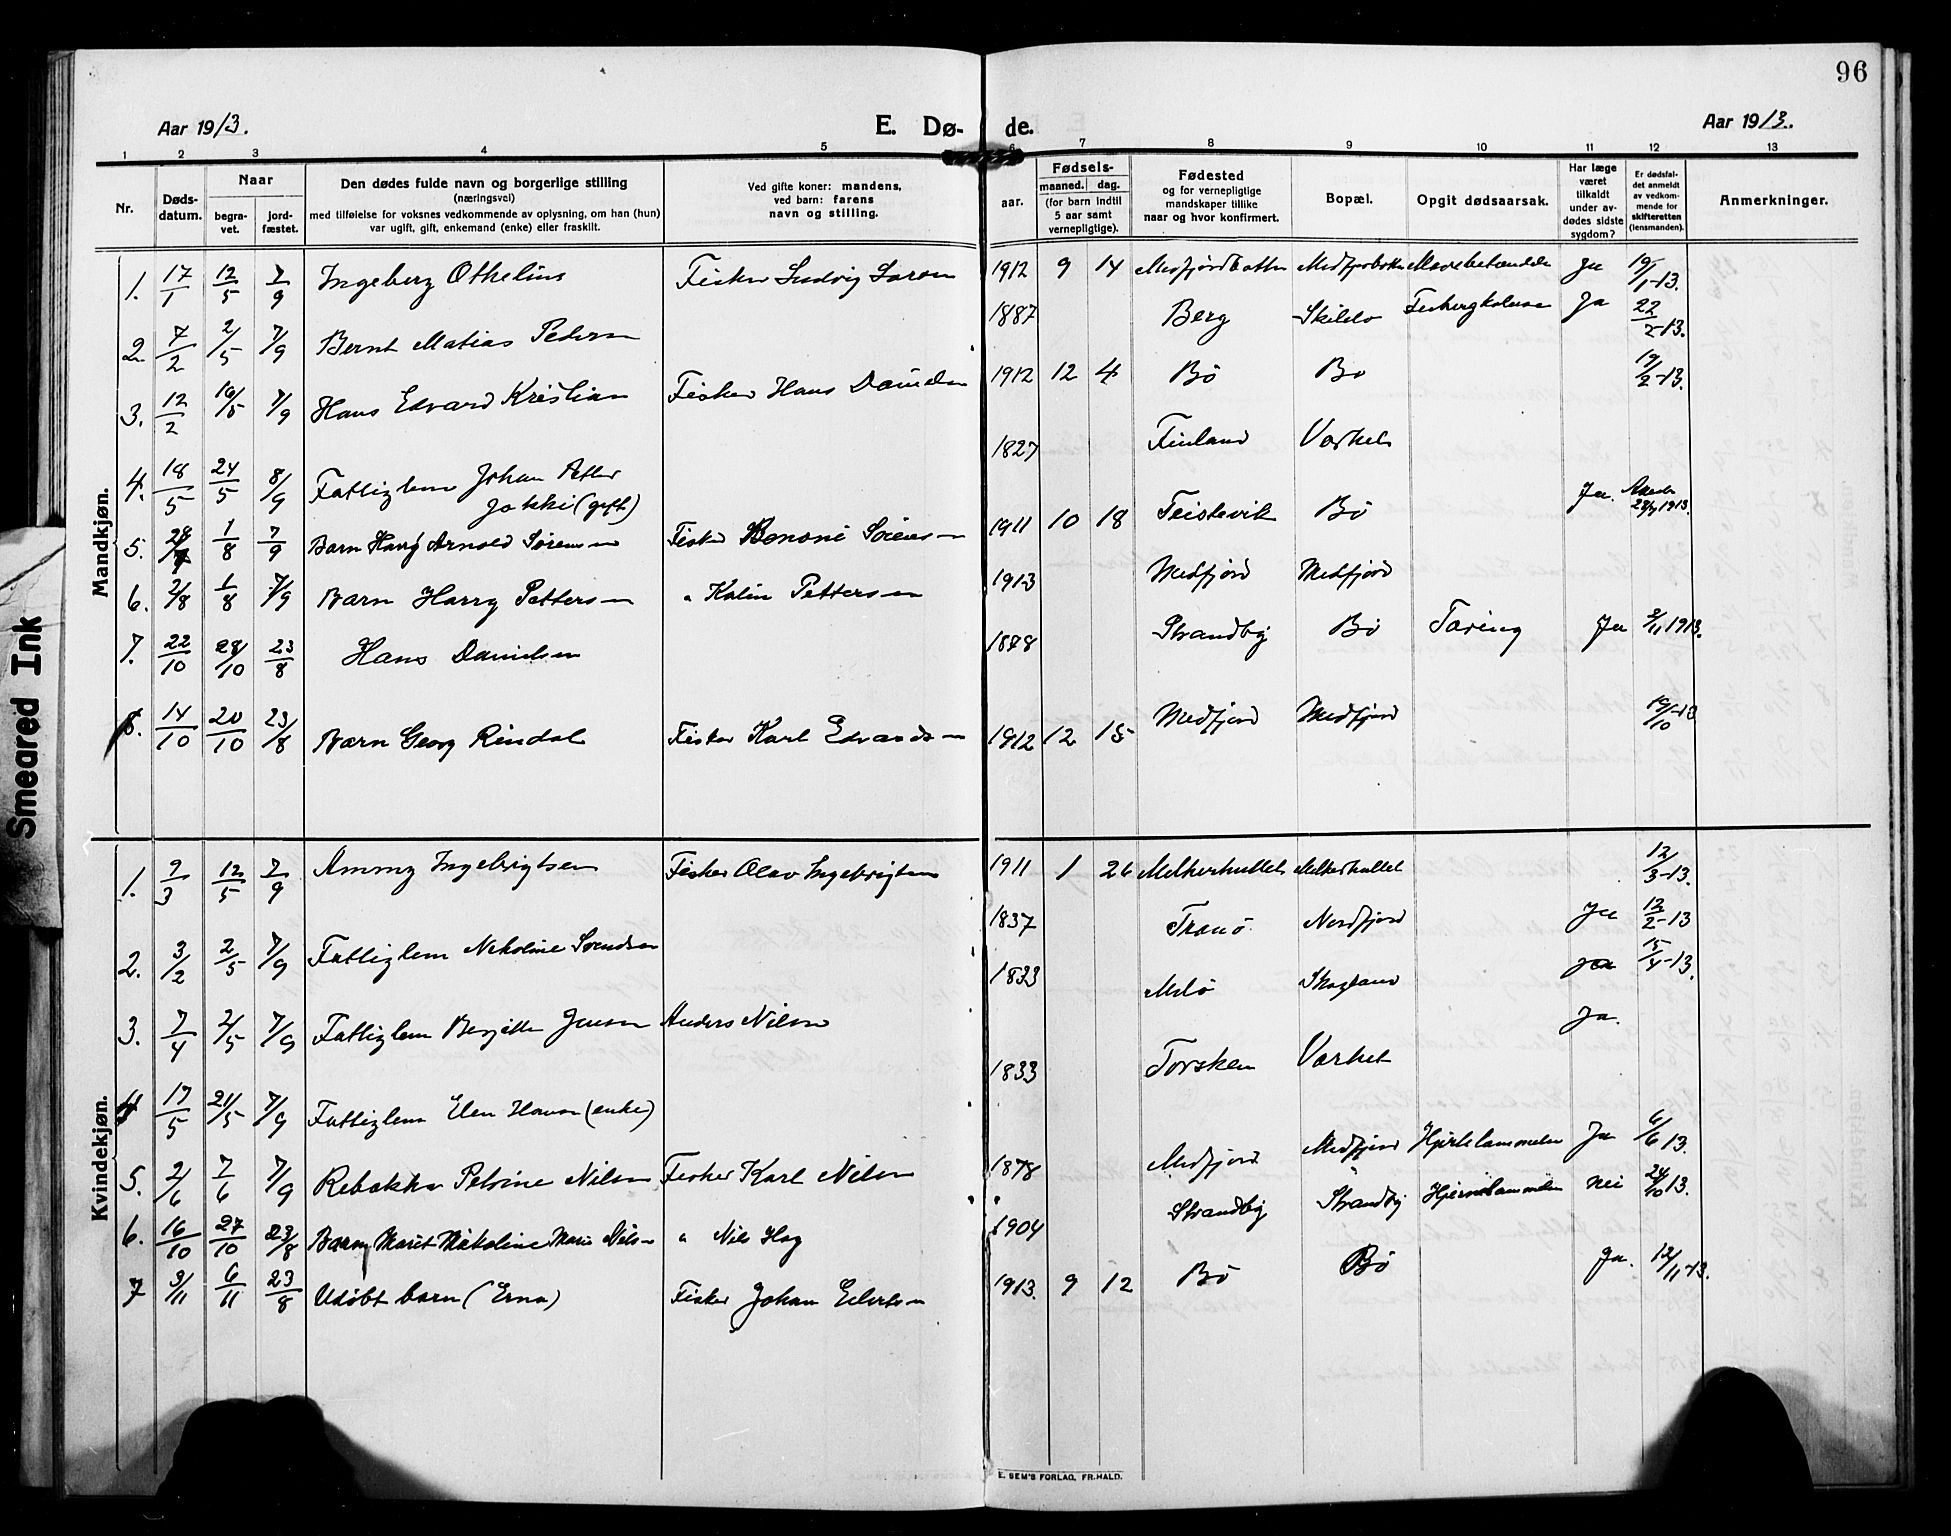 96
Aar 1913.
E. Dø- de.
Aar 1913.
1 2 3 4 5 6 7 8 9 10 11 12 13
Nr.
Døds-
datum.
Naar
begra-
vet.
jord-
fæstet.
Den dødes fulde navn og borgerlige stilling
(næringsvei)
med tilføielse for voksnes vedkommende av oplysning, om han (hun)
var ugift, gift, enkemand (enke) eller fraskilt.
Ved gifte koner: mandens,
ved barn: farens
navn og stilling.
Fødsels-
aar.
maaned. dag.
(for barn indtil
5 aar samt
vernepligtige).
Fødested
og for vernepligtige
mandskaper tillike
naar og hvor konfirmert.
Bopæl.
Opgit dødsaarsak.
Har læge
været
tilkaldt
under av-
dødes sidste
sygdom?
Er dødsfal-
det anmeldt
av vedkom-
mende for
skifteretten
(lensmanden).
Anmerkninger.
Mandkjøn.
1. 17/1 12/5 7/9 Ingeberg Othelius Fisker Ludvig Larsen 1912 9 14 Mefjordbotten Ja 19/1-13.
2. 7/2 2/5 7/9 Bernt Matias Pedersen 1887 Berg Ja 22/2-13.
3. 12/2 16/5 7/9 Hans Edvard Kristian Fisker Hans Danielsen 1912 12 4 Bö Bö 19/2-13.
4. 18/5 24/5 8/9 Fattiglem Johan Petter
Jokki (gift) 1827 Finland Varhet
5. 28/7 1/8 7/9 Barn Harry Arnold Sörensen Fisker Benoni Sörensen 1911 10 18 Teistevik Bö Ja 1913.
6. 2/8 1/8 7/9 Barn Harry Pettersen " Kalin Pettersen 1913 Medfjord Medfjord
7. 22/10 28/10 23/8 Hans Danielsen 1878 Strandby Bö Tæring Ja 2/11 1913.
8. 14/10 20/10 23/8 Barn Georg Rindal Fisker Karl Edvardsen 1912 12 15 Medfjord Medfjord 19/10-13
Kvindekjøn.
1. 9/3 12/5 7/9 Ammy Ingebrigtsen Fisker Olav Ingebrigtsen 1911 1 26 Melkerhullet Melkerhullet 12/3-13.
2. 3/2 2/5 7/9 Fattiglem Nikoline Svendsen 1837 Tranö Nordfjord Ja 12/2-13
3. 7/4 2/5 7/9 Fattiglem Berjitte Jensen Anders Nilsen 1833 Melö Skagland Ja 15/4-13.
4 17/5 21/5 7/9 Fattiglem Elen Hansen (enke) 1833 Torsken Varhet Ja.
5. 2/6 7/6 7/9 Rebekka Petrine Nilsen Fisker Karl Nilsen 1878 Medfjord Medfjord Hjertelammelse Ja 6/6 13.
6. 16/10 27/10 23/8 Barn Marit Nikoline Marie Nilsen " Nils Hog 1904 Strandby Strandby Hjernelammelse Nei 24/10 13.
7 3/11 6/11 23/8 Udöbt barn (Erna) Fisker Johan Edvardsen 1913. 9 12 Bö Bö Ja. 12/11-13.
E. SEM'S FORLAG, FR.HALD.
Smeared Ink